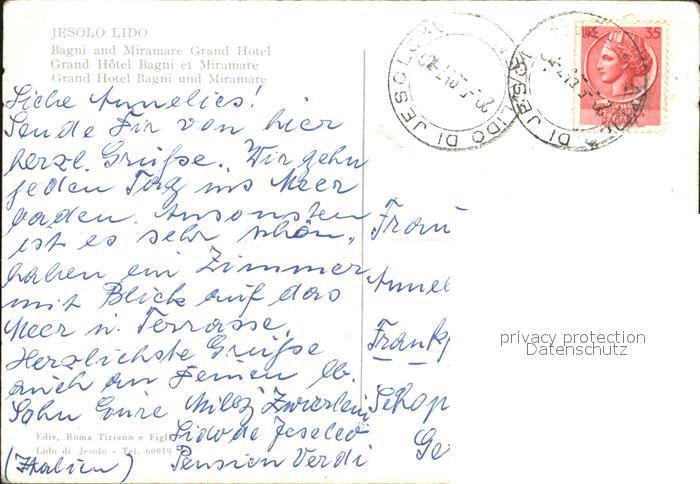 JESOLO LIDO
Bagni and Miramare Grand Hotel
Grand Hôtel Bagni et Miramare
Grand Hotel Bagni und Miramare
Liebe Annelies!
Sende Dir von hier
herzl. Grüße. Wir gehn
jeden Tag ins Meer
baden. Ansonsten
ist es sehr schön,
haben ein Zimmer
mit Blick auf das
Meer u. Terrasse.
Herzlichste Grüße
auch an Deinen lb.
Sohn Eure
Lido de Jesoleo
(Italien) Pension Verdi
Ediz. Roma Tiziano e Figli
Lido di Jesolo - Tel. 60019
LIRE 35
LIDO DI JESOLO
LIDO DI JESOLO
Annel
Frankf
privacy protection
Datenschutz